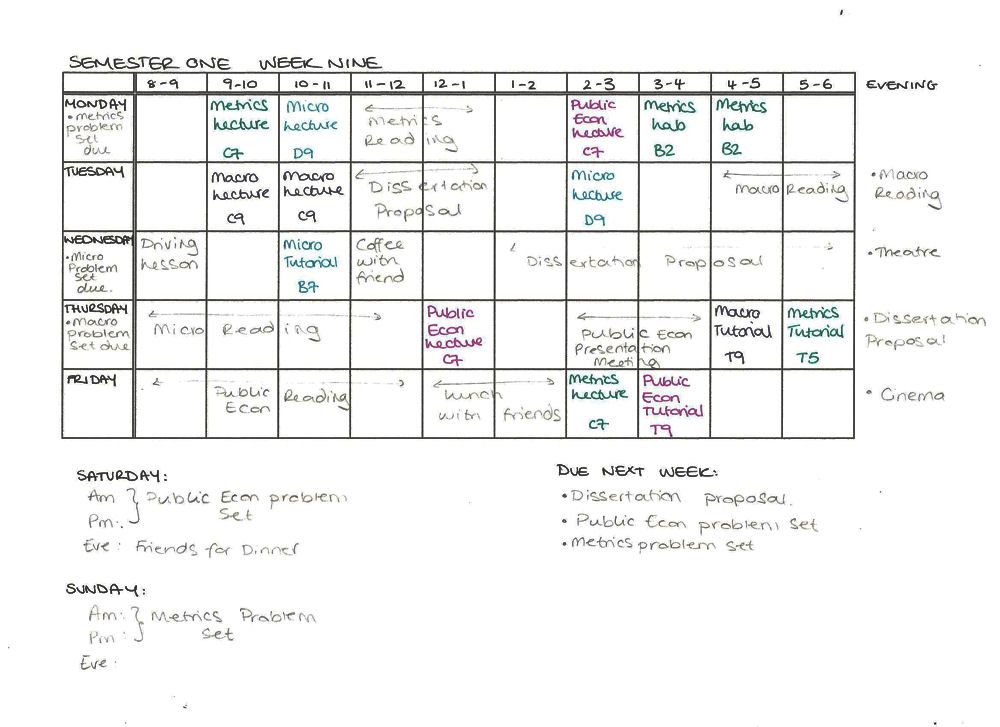 SEMESTER ONE WEEK NINE
8-9 9-10 10-11 11-12 12-1 1-2 2-3 3-4 4-5 5-6 EVENING
MONDAY
• metrics
problem
set
due
Metrics
Lecture
C7
Micro
Lecture
D9
Metrics
Reading
Public
Econ
Lecture
C7
Metrics
Lab
B2
Metrics
Lab
B2
TUESDAY
Macro
Lecture
C9
Macro
Lecture
C9
Dissertation
Proposal
Micro
Lecture
D9
Macro Reading
• Macro
Reading
WEDNESDAY
• Micro
Problem
set
due.
Driving
Lesson
Micro
Tutorial
B7
Coffee
with
friend
Dissertation Proposal
• Theatre
THURSDAY
• Macro
problem
set due
Micro Reading
Public
Econ
Lecture
C7
Public Econ
Presentation
Meeting
Macro
Tutorial
T9
Metrics
Tutorial
T5
• Dissertation
Proposal
FRIDAY
Public Reading
Econ
Lunch
with friends
Metrics
Lecture
C7
Public
Econ
Tutorial
T9
• Cinema
SATURDAY:
Am } Public Econ problem
Pm: Set
Eve: Friends for Dinner
DUE NEXT WEEK:
• Dissertation proposal.
• Public Econ problem set
• Metrics problem set
SUNDAY:
Am: } Metrics Problem
Pm: Set
Eve: